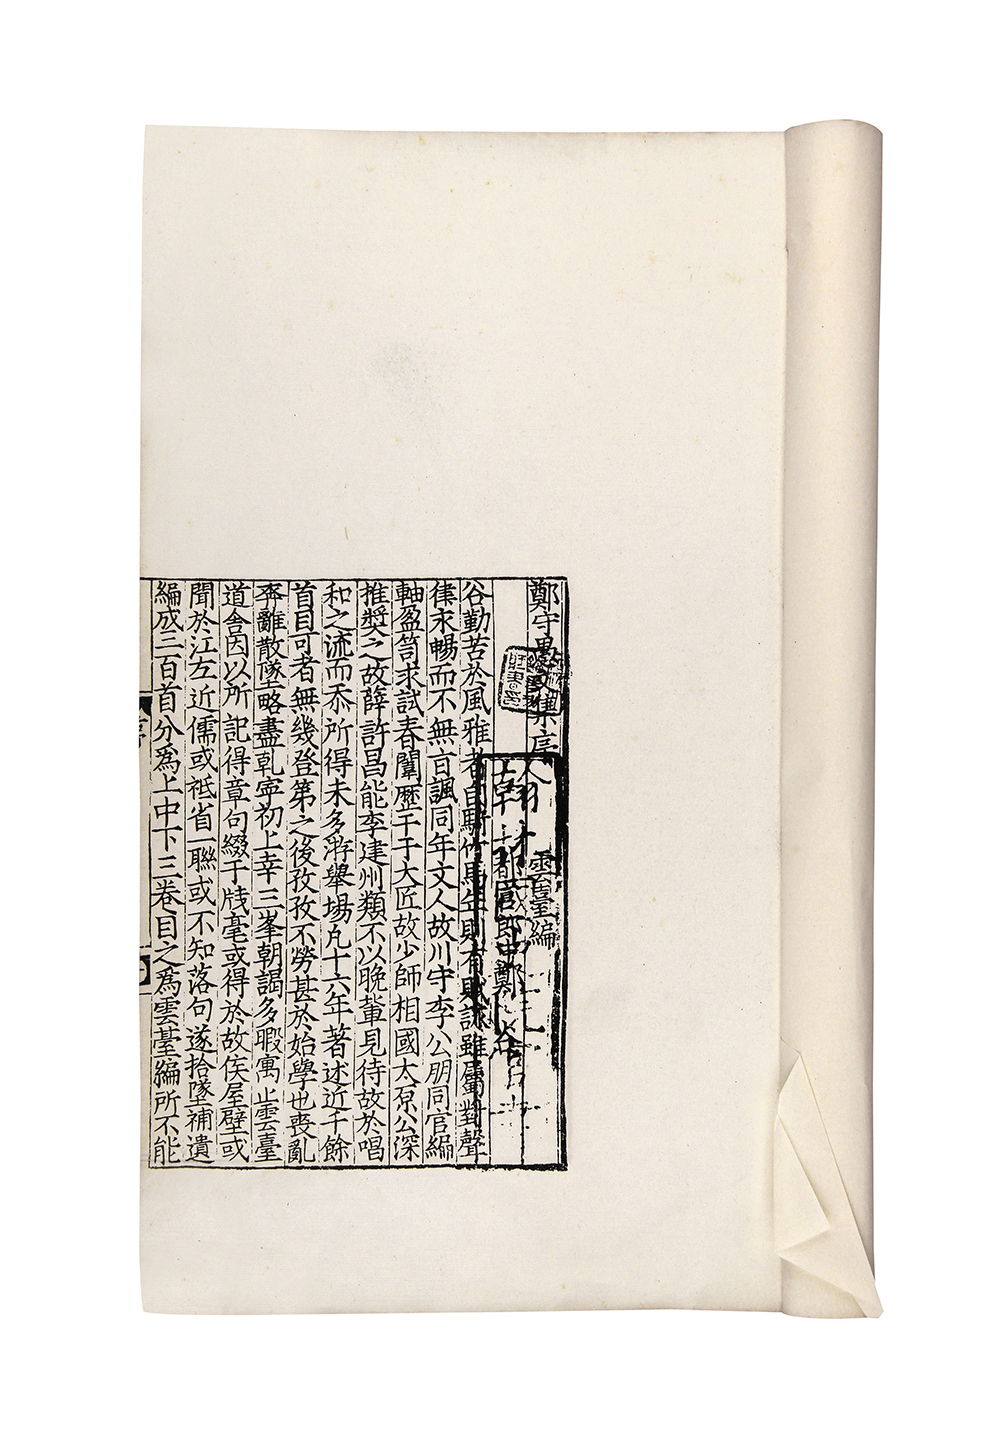 鄭守愚文集序 雲臺編
都官郎中鄭谷
谷勤苦於風雅者自騎竹馬年則有賦詠雖屬對聲
律未暢而不無百諷同年丈人故川守李公朋同官編
軸盈笥求試春闈歷干于大匠故少師相國太原公深
推奬之故薛許昌能李建州頻不以晚輩見待故於唱
和之流而忝所得未多游舉場凡十六年著述近千餘
首自可者無幾登第之後孜孜不勞甚於始學也喪亂
奔離散墜略盡乾寧初上幸三峯朝謁多暇寓止雲臺
道舍因以所記得章句綴于牋毫或得於故侯屋壁或
聞於江左近儒或祗省一聯或不知落句遂拾墜補遺
編成三百首分爲上中下三卷目之爲雲臺編所不能
序
翰